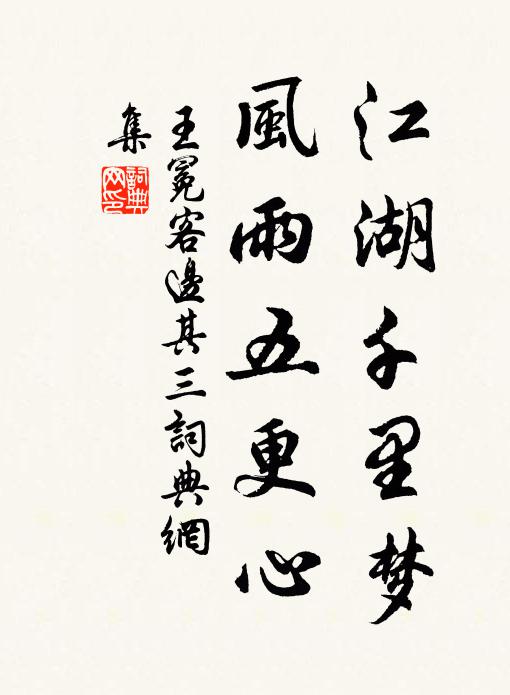 江湖千里梦
風雨五更心
王冕客邊其三詞典網
集
詞典
网印